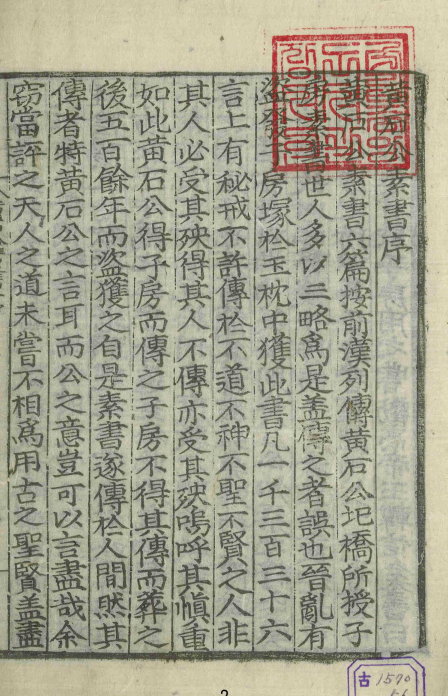 黃石公素書序
黃石公素書六篇按前漢列傳黃石公圯橋所授子
房素書世人多以三略爲是盖傳之者誤也晉亂有
盜發子房塚於玉枕中獲此書凡一千三百三十六
言上有秘戒不許傳於不道不神不聖不賢之人非
其人必受其殃得其人不傳亦受其殃嗚呼其愼重
如此黃石公得子房而傳之子房不得其傳而葬之
後五百餘年而盜獲之自是素書遂傳於人間然其
傳者特黃石公之言耳而公之意豈可以言盡哉余
窃當評之天人之道未嘗不相爲用古之聖賢盖盡
古 1590